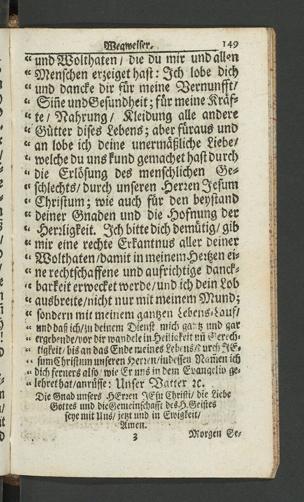 Wegweiser. 149
“ und Wolthaten / die du mir und allen
“ Menschen erzeiget hast: Ich lobe dich
“ und dancke dir für meine Vernunfft/
“ Siñe und Gesundheit; für meine Kräf-
“ te/ Nahrung/ Kleidung alle andere
“ Gütter dises Lebens; aber füraus und
“ an lobe ich deine unermäßliche Liebe/
“ welche du uns kund gemachet hast durch
“ die Erlösung des menschlichen Ge-
“ schlechts/ durch unseren Herren Jesum
“ Christum; wie auch für den beystand
“ deiner Gnaden und die Hofnung der
“ Herrligkeit. Ich bitte dich demütig/ gib
“ mir eine rechte Erkantnus aller deiner
“ Wolthaten/ damit in meinem Hertzen ei-
“ ne rechtschaffene und aufrichtige danck-
“ barkeit erwecket werde/ und ich dein Lob
“ ausbreite/ nicht nur mit meinem Mund;
“ sondern mit meinem gantzen Lebens-Lauf/
“ und daß ich/ zu deinem Dienst mich gantz und gar
“ ergebende/ vor dir wandele in Heiligkeit uñ Gerech-
“ tigkeit/ bis an das Ende meines Lebens/ durch JE-
“ sum Christum unseren Herren/ in dessen Namen ich
“ dich ferrers also/ wie Er uns in dem Evangelio ge-
“ lehret hat/ anrüffe: Unser Vatter ꝛc.
Die Gnad unsers HErren JEsu Christi/ die Liebe
Gottes und die Gemeinschafft des H. Geistes
seye mit Uns/ jetzt und in Ewigkeit/
Amen.
3 Morgen Se-